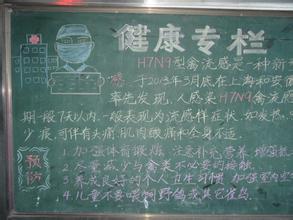 健康专栏
H7N9型禽流感是一种新
于2013年3月底在上海和安
率先发现。人感染H7N9禽流感
期一般7天以内。一般表现为流感样症状,如发热,
少痰,可伴有头痛,肌肉酸痛和全身不适。
预防
1.加强体育锻炼,注意补充营养,增强
2.尽量减少与禽类不必要的接触
3.养成良好的个人卫生习惯,加强室内空
4.儿童不要喂饲野鸽或其它雀鸟